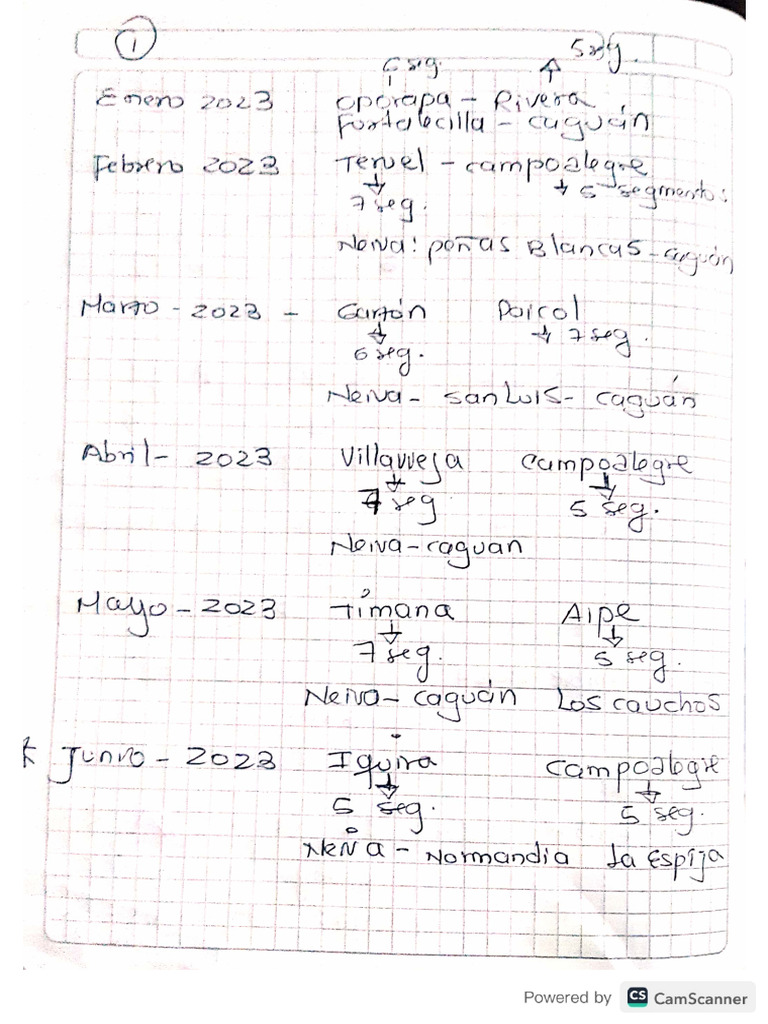 1
5 seg.
6 seg.
Enero 2023 Oporapa - Rivera
Fortalecilla - caguán
Febrero 2023 Teruel - campoalegre
7 seg. 5 segmentos
Neiva: peñas Blancas - caguán
Marzo - 2023 - Garzón Paicol
6 seg. 7 seg.
Neiva - san Luis - caguán
Abril - 2023 Villavieja campoalegre
7 seg 5 seg.
Neiva - caguan
Mayo - 2023 Tímana Aipe
7 seg. 5 seg.
Neiva - caguán Los cauchos
Junio - 2023 Iquira campoalegre
5 seg. 5 seg.
Neiva - Normandia la Espija
Powered by CS CamScanner